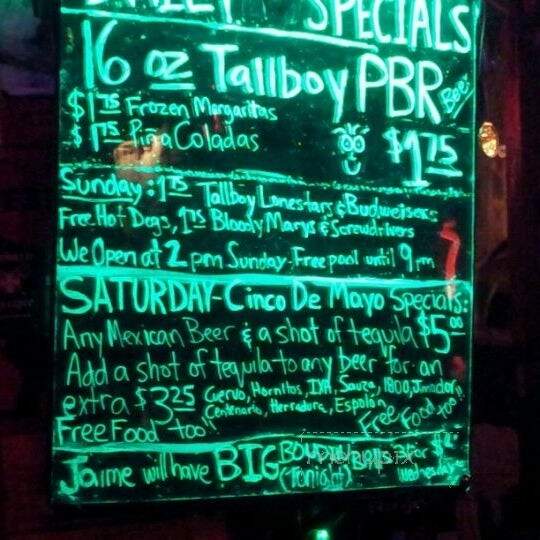 DAILY SPECIALS
16 oz Tallboy PBR Beer
$1.75 Frozen Margaritas
$1.75 Piña Coladas $1.75
Sunday: 1.75 Tallboy Lonestars & Budweisers
Free Hot Dogs, 1.75 Bloody Marys & Screwdrivers
We Open at 2pm Sunday-Free pool until 9pm
SATURDAY-Cinco De Mayo Specials:
Any Mexican Beer & a shot of tequila $5.00
Add a shot of tequila to any beer for an
extra $3.25 Cuervo, Hornitos, IXA, Sauza, 1800,
Centenario, Herradura, Espolón
Free Food too!! Free Food too!!
Jaime will have BIG
(Tonight)
Wednesday
menupix